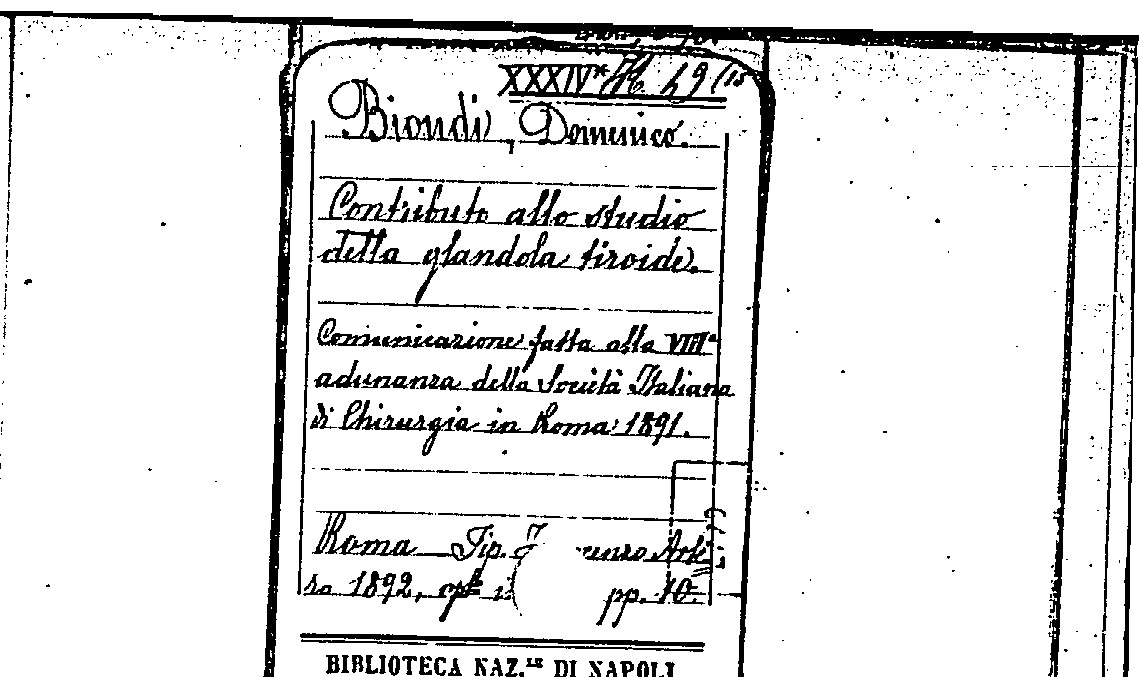 XXXIV* H 49 (15
Biondi, Domenico.
Contributo allo studio
della glandola tiroide.
Comunicazione fatta alla VIIIa
adunanza della Società Italiana
di Chirurgia in Roma 1891.
Roma Tip.
ro 1892, pp. 10.
BIBLIOTECA NAZ.LE DI NAPOLI